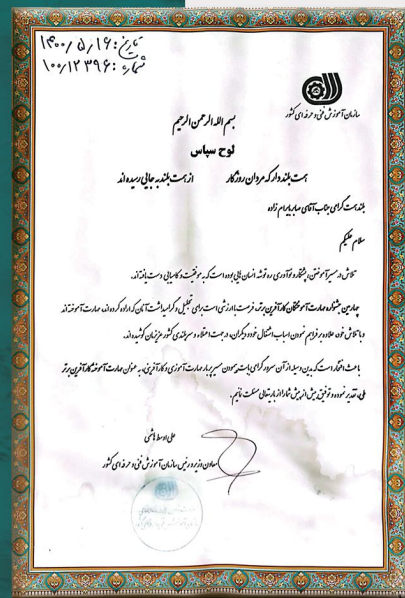 تاریخ: ۱۴۰۰/۵/۱۶
شماره: ۱۰۰/۱۲۳۹۶
سازمان آموزش فنی و حرفه ای کشور
بسم الله الرحمن الرحیم
لوح سپاس
همت بلند دار که مردان روزگار از همت بلند به جایی رسیده اند
بلند همت گرامی جناب آقای صابر بایرام زاده
سلام علیکم
تلاش در مسیر آموختن، ابتکار و نوآوری ره توشه انسان هایی بوده است که به موفقیت و کامیابی دست یافته اند.
چهارمین جشنواره مهارت آموختگان کارآفرین برتر، فرصت با ارزشی است برای تجلیل و گرامیداشت آنان که اراده کرده اند، مهارت آموخته اند
و با تلاش خود علاوه بر فراهم نمودن اسباب اشتغال خود و دیگران، در جهت اعتلاء و سربلندی کشور عزیزمان کوشیده اند.
باعث افتخار است که بدین وسیله از آن سرور گرامی بابت پیمودن مسیر پربار مهارت آموزی و کارآفرینی، به عنوان مهارت آموخته کارآفرین برتر
ملی، تقدیر نموده و توفیق بیش از پیش شما را از باریتعالی مسئلت نمایم.
علی اوسط هاشمی
معاون وزیر و رئیس سازمان آموزش فنی و حرفه ای کشور